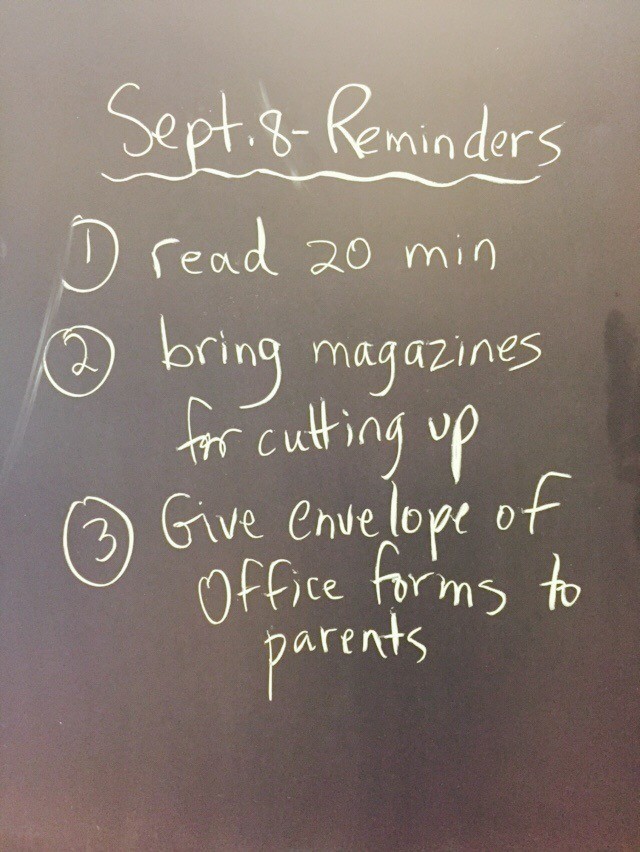 Sept. 8 - Reminders
① read 20 min
② bring magazines
for cutting up
③ Give envelope of
Office forms to
parents